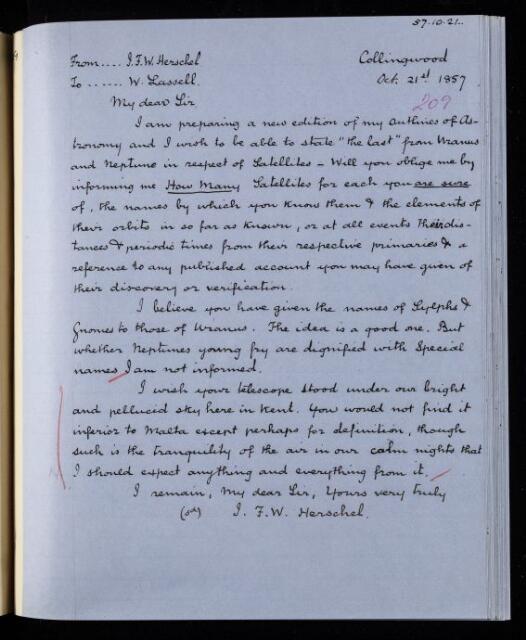 57.10.21.
From.... J.F.W. Herschel Collingwood
To ...... W. Lassell. Oct. 21st 1857
My dear Sir 209
I am preparing a new edition of my Outlines of As-
tronomy and I wish to be able to state "the last" from Uranus
and Neptune in respect of Satellites – Will you oblige me by
informing me How Many Satellites for each you are sure
of, the names by which you know them & the elements of
their orbits in so far as known, or at all events their dis-
tances & periodic times from their respective primaries & a
reference to any published account you may have given of
their discovery or verification.
I believe you have given the names of Sylphs &
Gnomes to those of Uranus. The idea is a good one. But
whether Neptunes young fry are dignified with Special
names I am not informed.
I wish your telescope stood under our bright
and pellucid sky here in Kent. You would not find it
inferior to Malta except perhaps for definition, though
such is the tranquility of the air in our calm nights that
I should expect anything and everything from it.
I remain, My dear Sir, Yours very truly
(sd) J. F.W. Herschel.